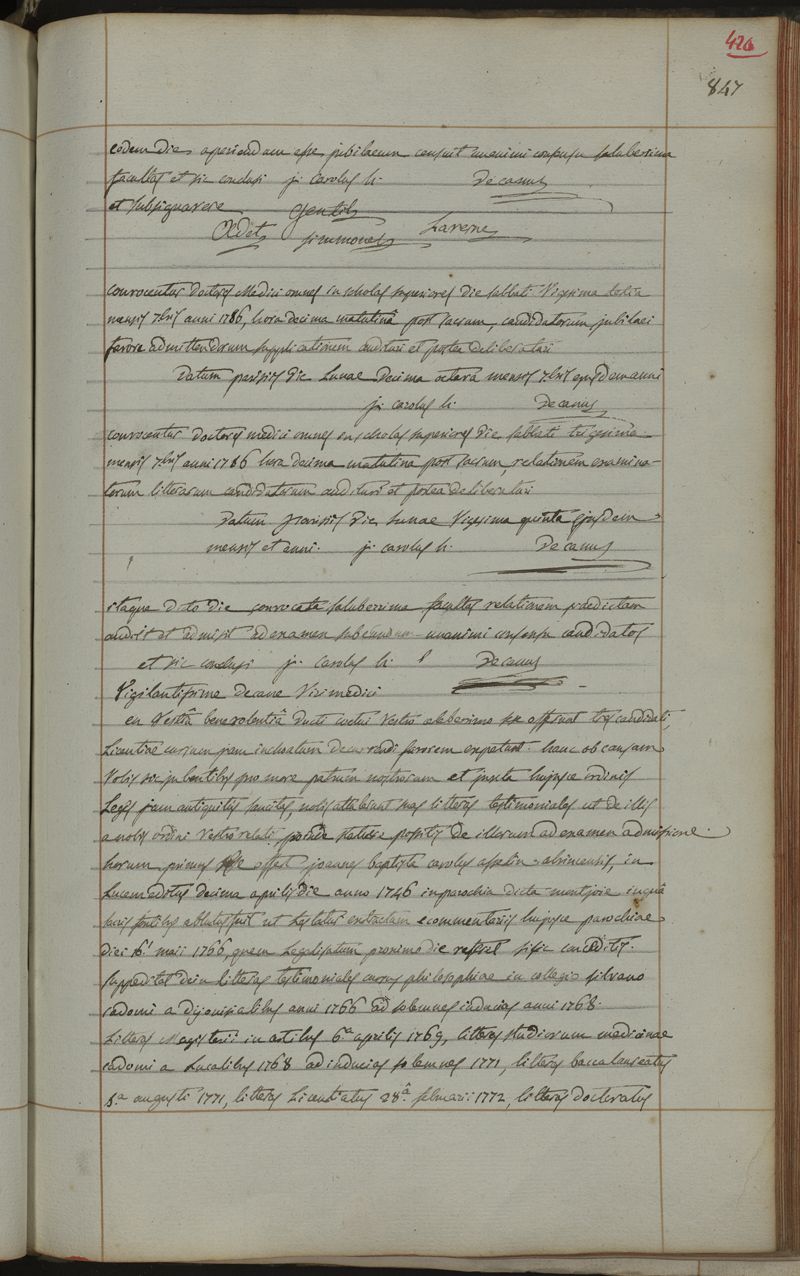 426
847
eodem die aperiendam esse jubilaeum censuit unanimi consensu saluberrima
facultas et sic conclusi j. carolus h. Decanus
et subsignavere Gentil
Oldet simmonet Laverne
convocentur doctores Medici omnes in scholas superiores die sabbati Vigesima tertia
mensis 7bris anni 1786, hora decima matutina post sacrum, candidatorum jubilaei
favore admittendorum supplicationem audituri et postea deliberaturi
Datum parisiis die Lunae decima octava mensis 7bris ejusdem anni
j. carolus h. Decanus
convocentur doctores medici omnes in scholas superiores die sabbati trigesima
mensis 7bris anni 1786 hora decima matutina post sacrum, relationem examina-
torum litterarum candidatorum audituri et postea deliberaturi
Datum parisiis die Lunae Vigesima quinta ejusdem
mensis et anni. j. carolus h. Decanus
itaque dicto die convocata saluberrima facultas relationem praedictam
audivit et admisit ad examen subeundum unanimi consensu candidatos
et sic conclusi j. Carolus h. Decanus
Vigilantissime decane Viri medici
en Vestrâ benevolentiâ ducti coetui Vestro celeberrimo se offerunt tres candidati,
Licentiae cursum jam inchoatum decurrendi favorem expetunt. hanc ob causam
Vobis sic jubentibus pro more patrum nostrorum et juxta hujusce ordinis
Leges jam antiquitus sancitas, nobis attulerunt suas litteras testimoniales ut de illis
a nobis ordini Vestro relatis, proinde statuere possitis de illorum ad examen admissione.
horum primus sese offert joannes baptista carolus asselin abrincensis, in
Lucem editus decima aprilis die anno 1746 in parochia dicta montjoie in quâ
sacris fontibus ablutus fuit ut testatur extractum e commentariis hujusce parochiae
diei 16.i maii 1766, quem Legalisatum proximo die refert
suppeditat dein litteras testimoniales cursus philosophiae in collegio silvano
cadomi a dyonisialibus anni 1766 ad solemnes inducias anni 1768.
Litteras Magisterii in artibus 6.a aprilis 1769, litteras studiorum medicinae
cadomi a Lucalibus 1768 ad inducias solemnes 1771, litteras baccalaureatus
8.a augusti 1771, litteras Licentiatus 28.â februarii 1772, litteras doctoratus